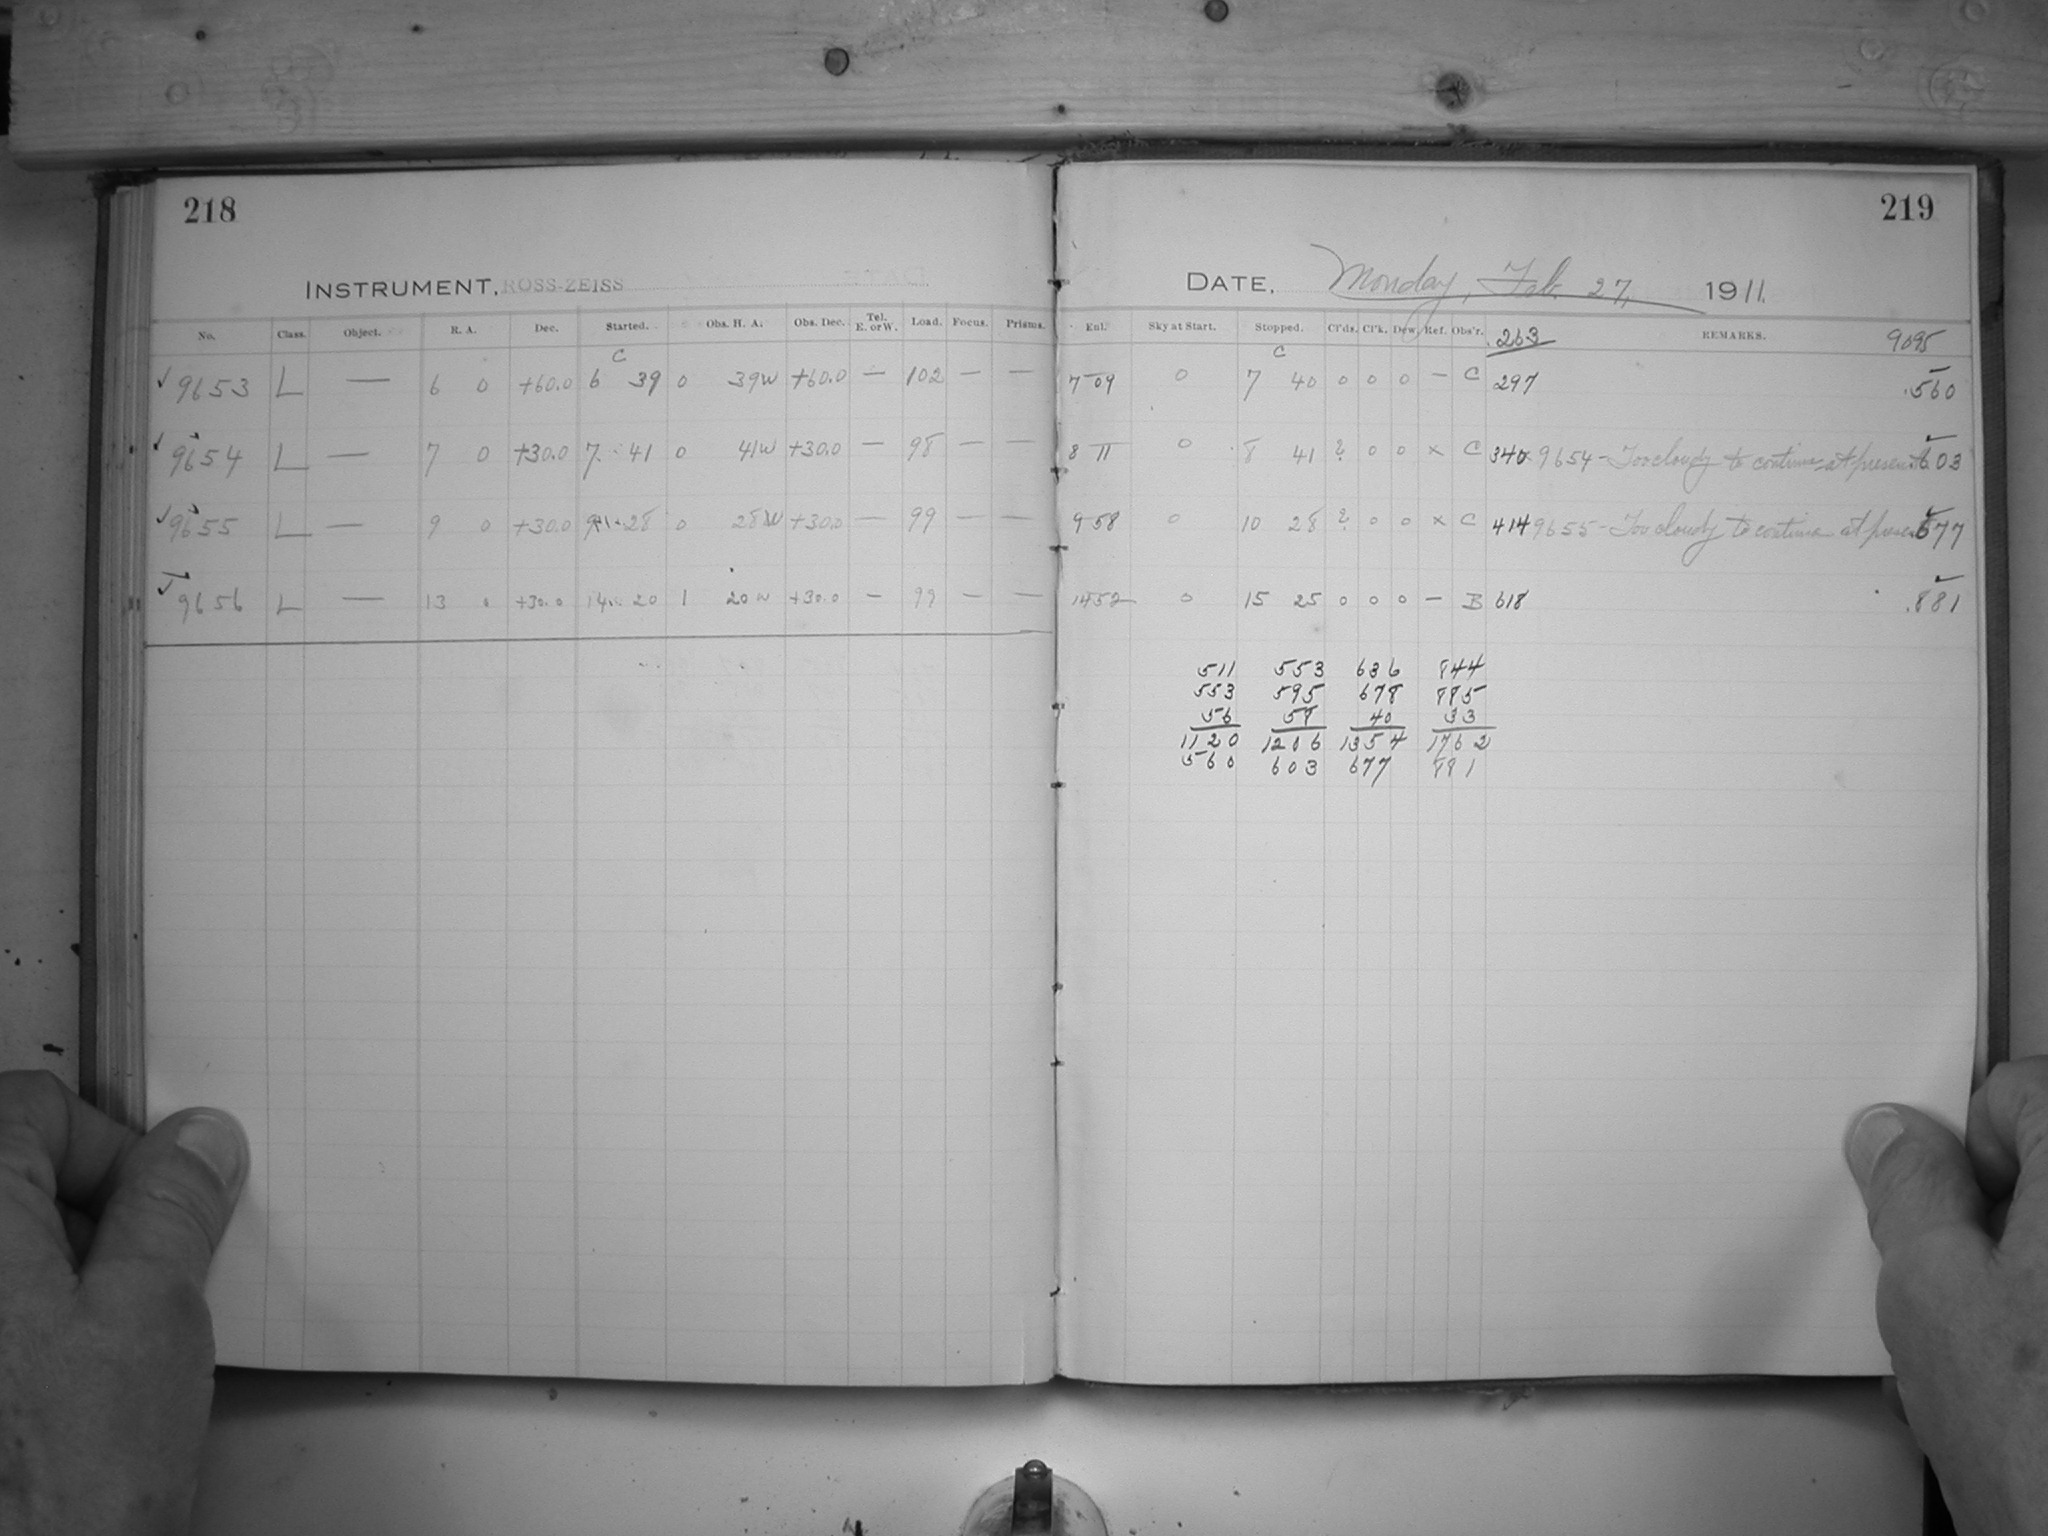 218
INSTRUMENT, ROSS-ZEISS
No. Class. Object. R. A. Dec. Started. Obs. H. A. Obs. Dec. Tel. E. or W. Load. Focus. Prisms.
C
✓ 9653 L — 6 0 +60.0 6 39 0 39W +60.0 — 102 — —
✓ 9654 L — 7 0 +30.0 7 41 0 41W +30.0 — 98 — —
✓ 9655 L — 9 0 +30.0 28 0 28W +30.0 — 99 — —
✓ 9656 L — 13 0 +30.0 14 20 1 20W +30.0 — 99 — —
219
DATE, Monday, Feb. 27, 1911.
Enl. Sky at Start. Stopped. Cl'ds. Cl'k. Dew. Ref. Obs'r. 263 REMARKS. 9095
C
7 09 0 7 40 0 0 0 — C 297 .560
8 11 0 8 41 ? 0 0 x C 340 9654 - Too cloudy to continue at present 603
9 58 0 10 28 ? 0 0 x C 414 9655 - Too cloudy to continue at present 677
14 52 0 15 25 0 0 0 — B 618 .881
511 553 636 844
553 595 678 885
56 58 40 33
1120 1206 1354 1762
560 603 677 881